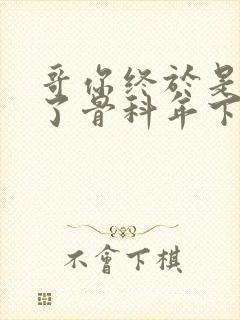 哥你终於是
了骨科年下
不會下棋